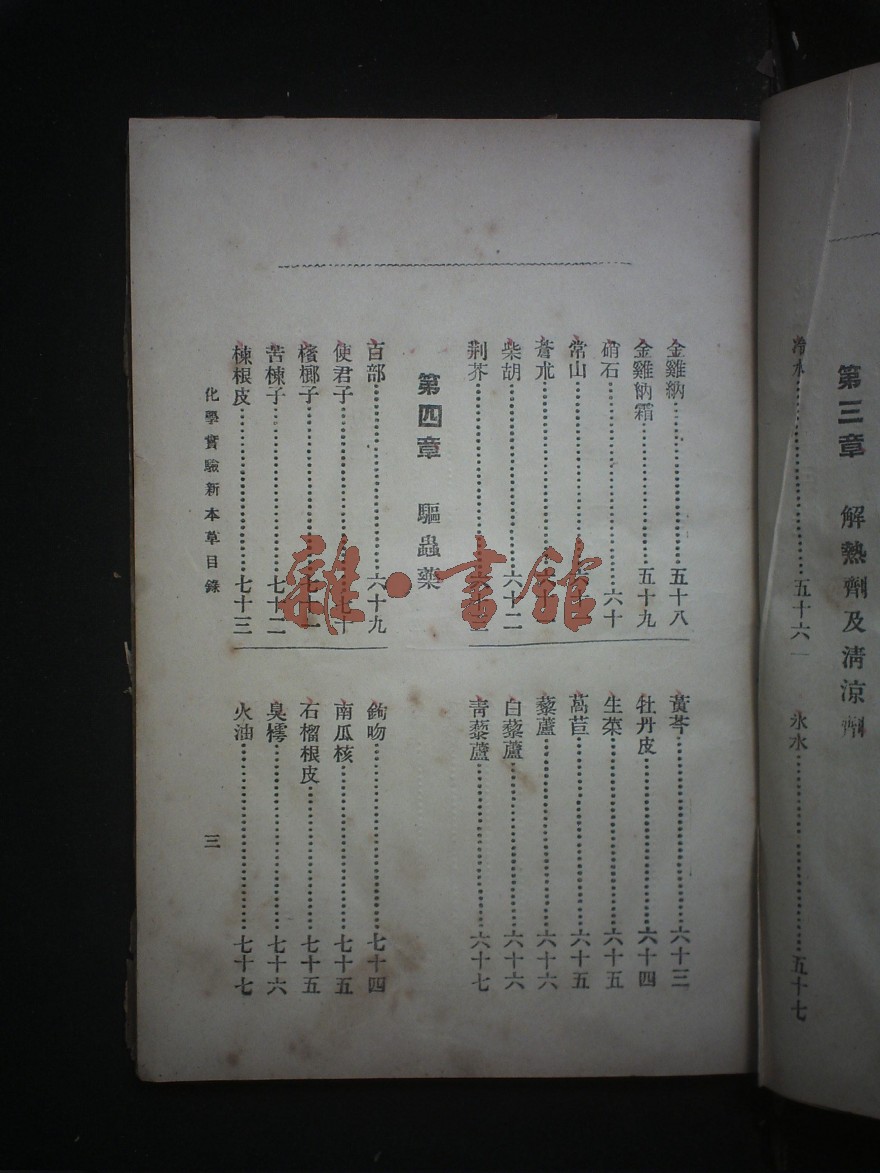 第三章　解熱劑及清涼劑
冷水⋯⋯五十六
氷水⋯⋯五十七
金雞納⋯⋯五十八
金雞納霜⋯⋯五十九
硝石⋯⋯六十
常山
蒼朮
柴胡⋯⋯六十二
荆芥
黃芩⋯⋯六十三
牡丹皮⋯⋯六十四
生菜⋯⋯六十五
萵苣⋯⋯六十五
藜蘆⋯⋯六十六
白藜蘆⋯⋯六十六
青藜蘆⋯⋯六十七
第四章　驅蟲藥
百部⋯⋯六十九
使君子⋯⋯七十
檳榔子⋯⋯七十一
苦楝子⋯⋯七十二
楝根皮⋯⋯七十三
鉤吻⋯⋯七十四
南瓜核⋯⋯七十五
石榴根皮⋯⋯七十五
臭樗⋯⋯七十六
火油⋯⋯七十七
化學實驗新本草目錄
三
雜·書館